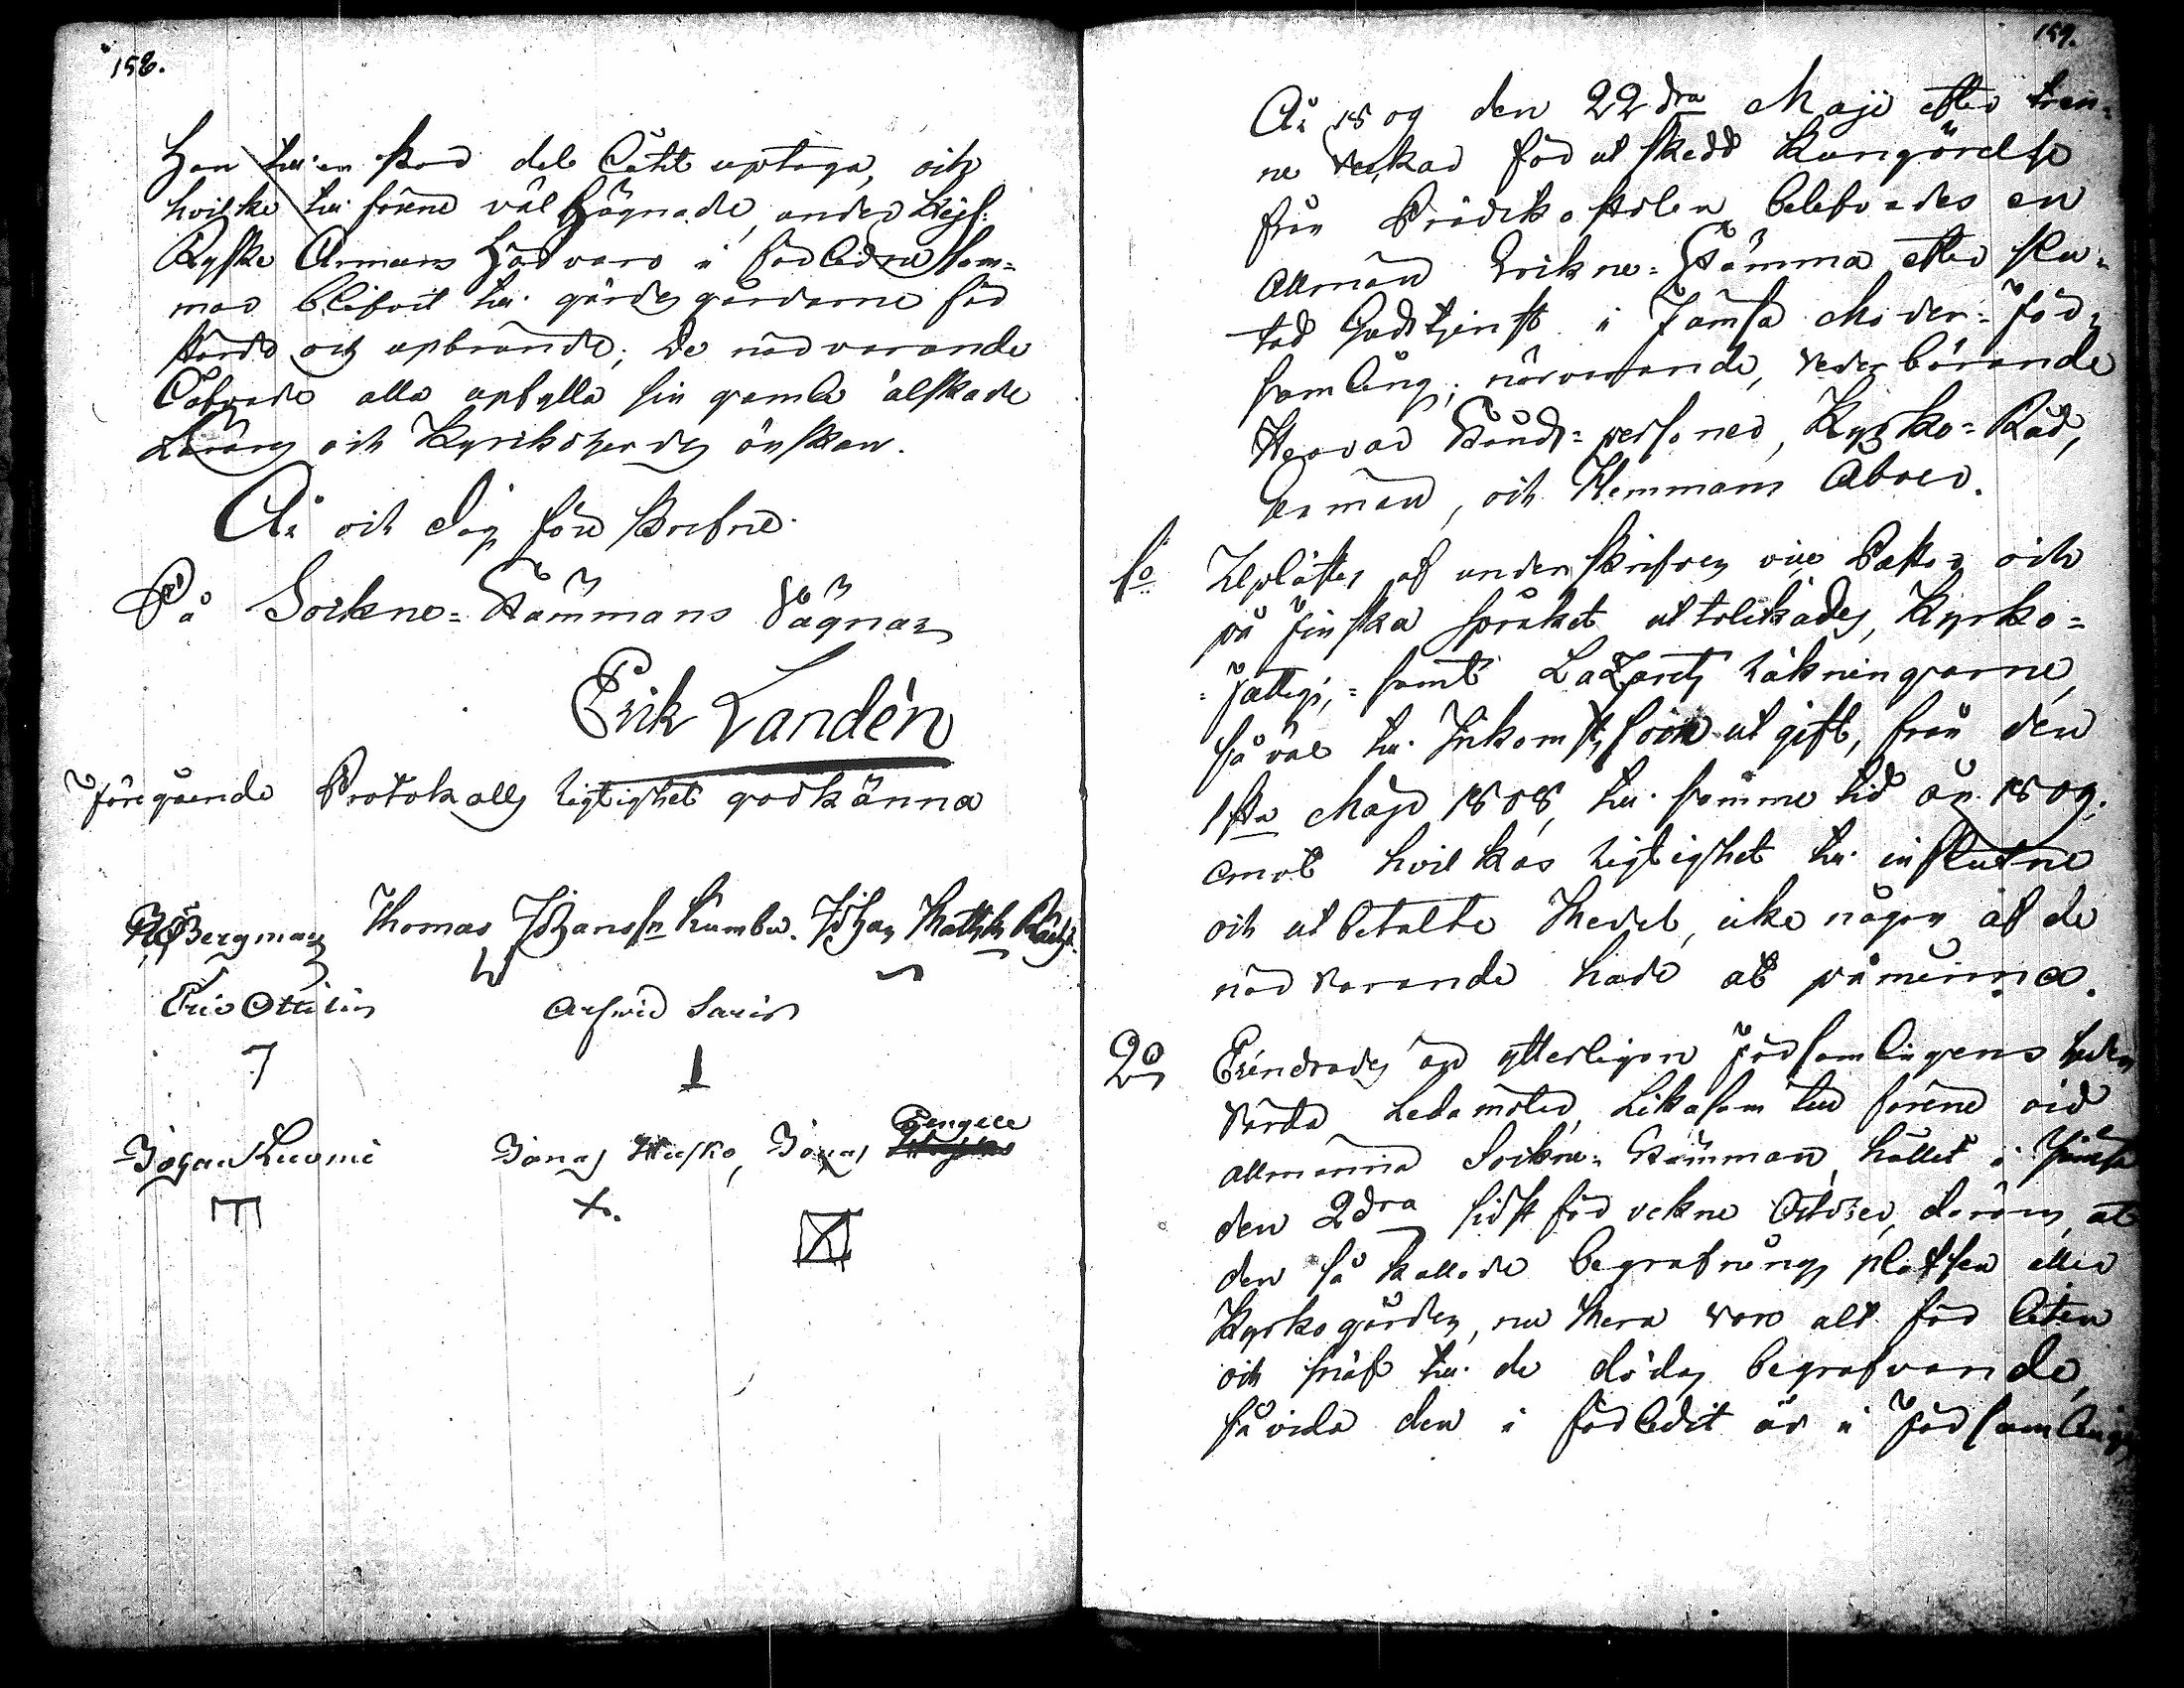 158.
Han til en stor del låtit uptaga, och
hvilke til förene väl hägnade, under Kejs:
Ryske Armeens härvaro i förledne som=
mar blifvit til gärdes gårdarne för
störde och upbrände; De närvarande
låfvade alla upfylla sin gamla älskade
Lärares och Kyrckoherdes önskan.
År och dag före skrefne.
På Sockne=Stämmans Vägnar
Erik Landén
Föregående Protokolls rigtighet godkänna
Bergman Thomas Johansson Johan Mattss
Eric Ottilin Arfwid Saris
Johan Luomi Jonas Husko, Jonas Pengele
159.
År 1809 den 22dra Maji efter tren=
ne veckor förut skedd Kungörelse
från Prädikostolen belefvades en
allmän Sockne=Stämma efter slu=
tad Gudstjenst i Jämsä Moder=För=
samling; närvarande, vederbörande
Herrar Stånds=personer, Kyrko=Råd,
Sexmän, och Hemmans Åboer.
1o Uplästes af underskrifven vice Pastor och
på Finska språket uttolkades, Kyrko=
=Fattigs,=samt Lazarets räkningarne,
så väl til Inkomst som utgift, från den
1sta Maji 1808, til samme tid år 1809;
emot hvilkas rigtighet til influtne
och utbetalte Medel, icke någon af de
närvarande hade at påminna.
2o Erindrades än ytterligare Församlingens
värda Ledamöter, likasom til förene vid
allmänna Sockne=Stämman, hållet i Jämsä
den 2dra sidst förvekne October, derom, at
den så kallade begrafnings platsen eller
Kyrkogården, nu mera vore alt för liten
och snäf til de dödas begrafvande,
såvida den i förledit år i Församlings